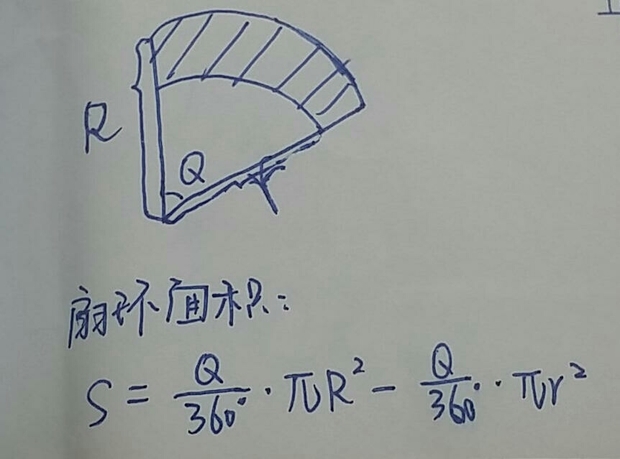 R
Q
r
扇环面积:
S = Q/360° · πR² − Q/360° · πr²